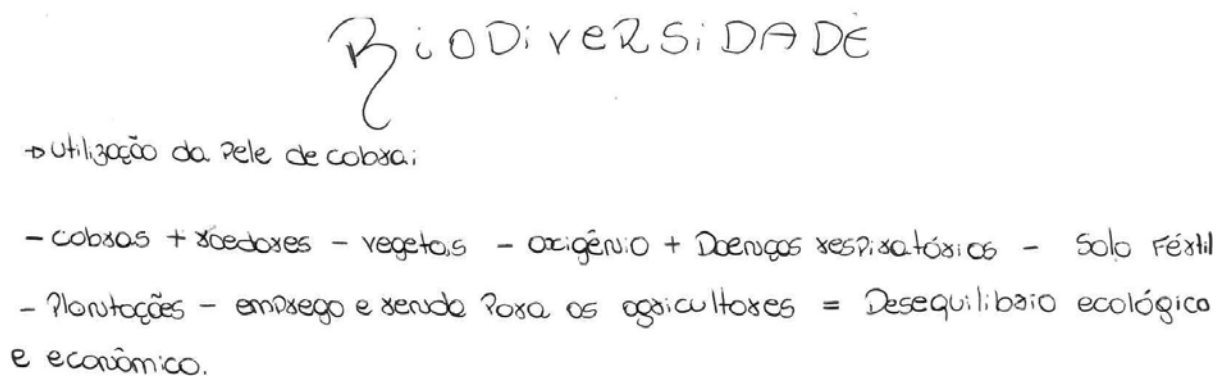 BiODiVeRSiDADE
→ Utilização da Pele de cobra:
- cobras + roedores - vegetais - oxigênio + Doenças respiratórios - Solo Fértil
- Plantações - emprego e renda Para os agricultores = Desequilibrio ecológico
e econômico.